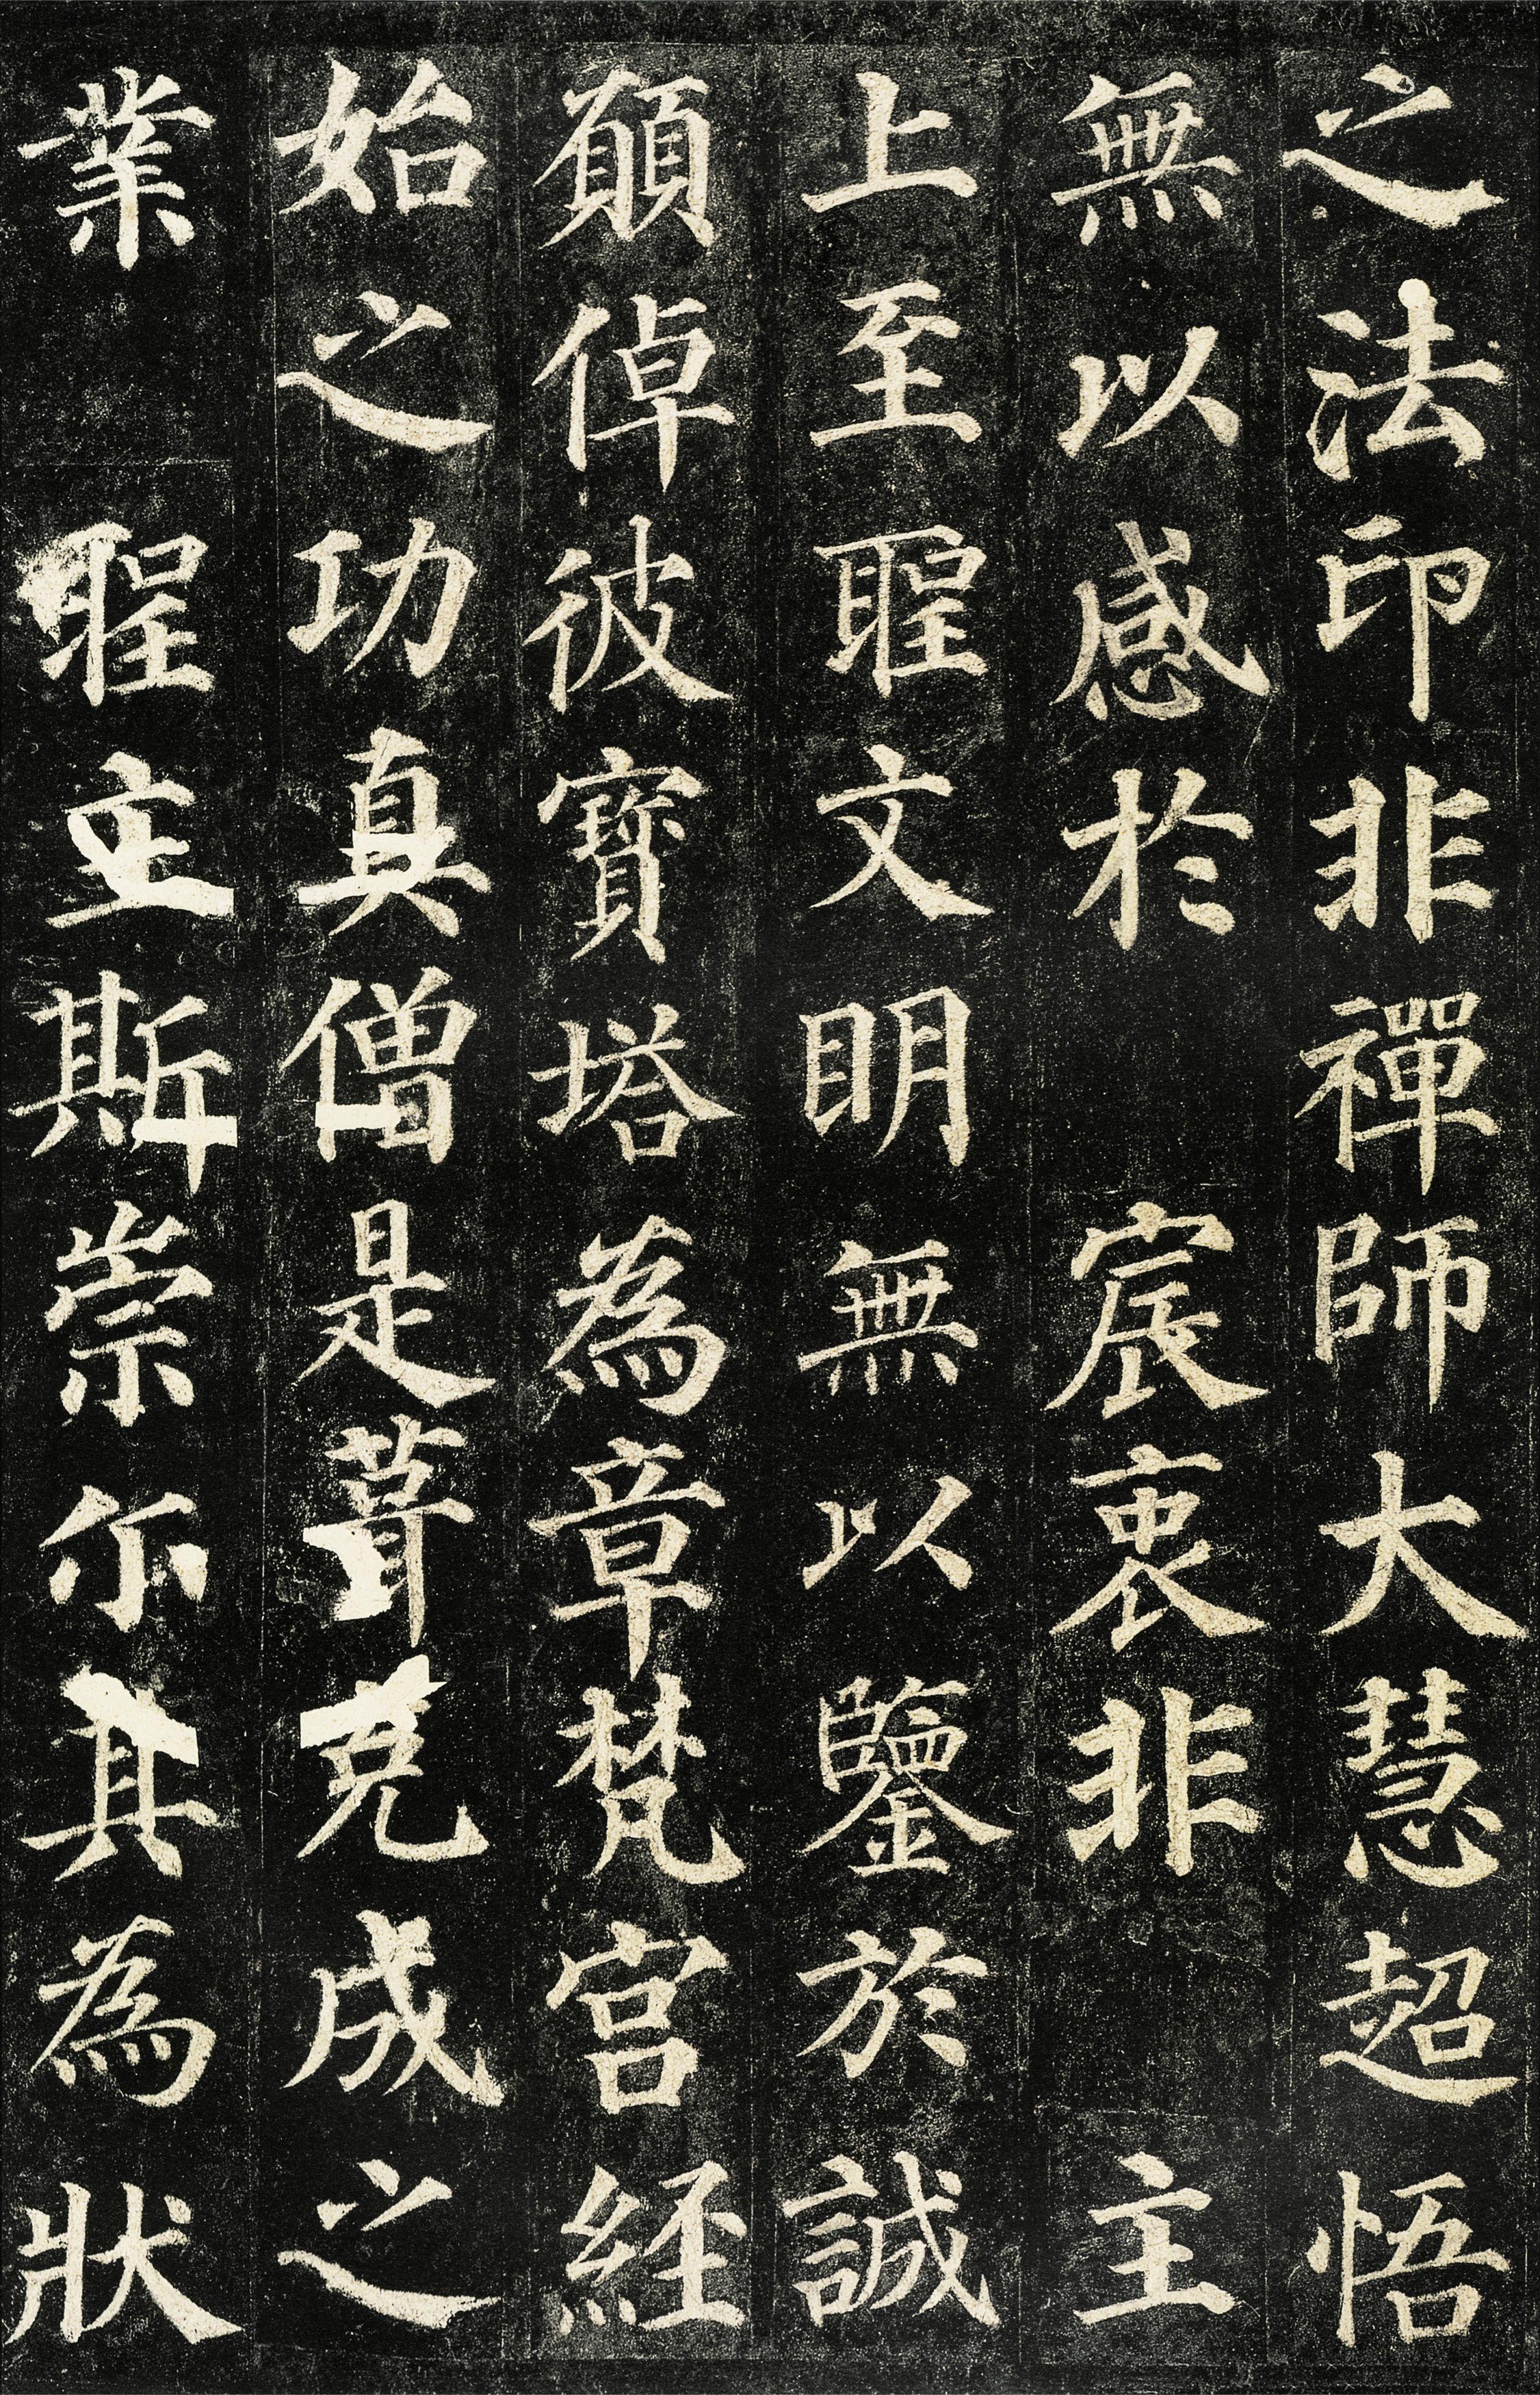 之法印非禪師大慧超悟
無以感於宸衷非主
上至聖文明無以鑒於誠
願倬彼寶塔為章梵宫經
始之功真僧是葺克成之
業聖主斯崇尔其為狀